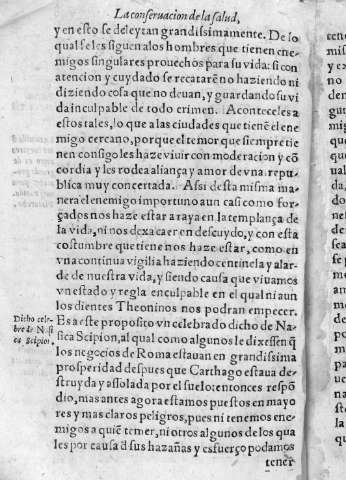 La conseruacion de la salud,
y en esto se deleytan grandissimamente. De lo
qual se les siguen a los hombres que tienen ene-
migos singulares prouechos para su vida: si con
atencion y cuydado se recatarẽ no haziendo ni
diziendo cosa que no deuan, y guardando su vi
da inculpable de todo crimen. Aconteceles a
estos tales, lo que a las ciudades que tienẽ el ene
migo cercano, porque el temor que siempre tie
nen consigo les haze viuir con moderacion y cõ
cordia y les rodea aliança y amor de vna repu-
blica muy concertada. Assi desta misma ma-
nera el enemigo importuno aun casi como for-
çados nos haze estar a raya en la templança de
la vida, ni nos dexa caer en descuydo, y con esta
costumbre que tiene nos haze estar, como en
vna continua vigilia haziendo centinela y alar-
de de nuestra vida, y siendo causa que viuamos
vn estado y regla enculpable en el qual ni aun
los dientes Theoninos nos podran empecer.
Es a este proposito vn celebrado dicho de Na-
sica Scipion, al qual como algunos le dixessen q̃
los negocios de Roma estauan en grandissima
prosperidad despues que Carthago estaua de-
struyda y assolada por el suelo: entonces respõ
dio, mas antes agora estamos puestos en mayo
res y mas claros peligros, pues ni tenemos ene-
migos a quiẽ temer, ni otros algunos de los qua
les por causa d̃ sus hazañas y esfuerço podamos
tener
Dicho cele-
bre de Nasi
ca Scipion.